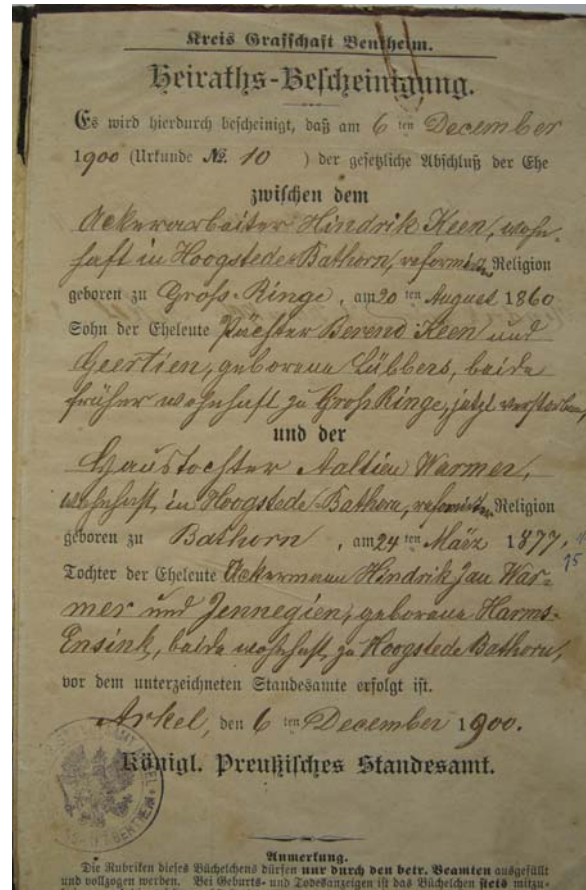 Kreis Grafschaft Bentheim.
Heiraths-Bescheinigung.
Es wird hierdurch bescheinigt, daß am 6 ten December
1900 (Urkunde No. 10 ) der gesetzliche Abschluß der Ehe
zwischen dem
Ackerarbeiter Hindrik Keen, wohn-
haft in Hoogstede-Bathorn, reformirter Religion
geboren zu Groß-Ringe, am 20 ten August 1860
Sohn der Eheleute Pächter Berend Keen und
Geertien, geborene Lübbers, beide
früher wohnhaft zu Groß Ringe, jetzt verstorben,
und der
Haustochter Aaltien Warmer,
wohnhaft in Hoogstede-Bathorn, reformirter Religion
geboren zu Bathorn, am 24 ten März 1877,
75
Tochter der Eheleute Ackermann Hindrik Jan War-
mer und Jennegien, geborene Harms-
Ensink, beide wohnhaft zu Hoogstede Bathorn,
vor dem unterzeichneten Standesamte erfolgt ist.
Arkel, den 6 ten December 1900.
Königl. Preußisches Standesamt.
Anmerkung.
Die Rubriken dieses Büchelchens dürfen nur durch den betr. Beamten ausgefüllt
und vollzogen werden. Bei Geburts- und Todesanzeigen ist das Büchelchen stets mitzu-